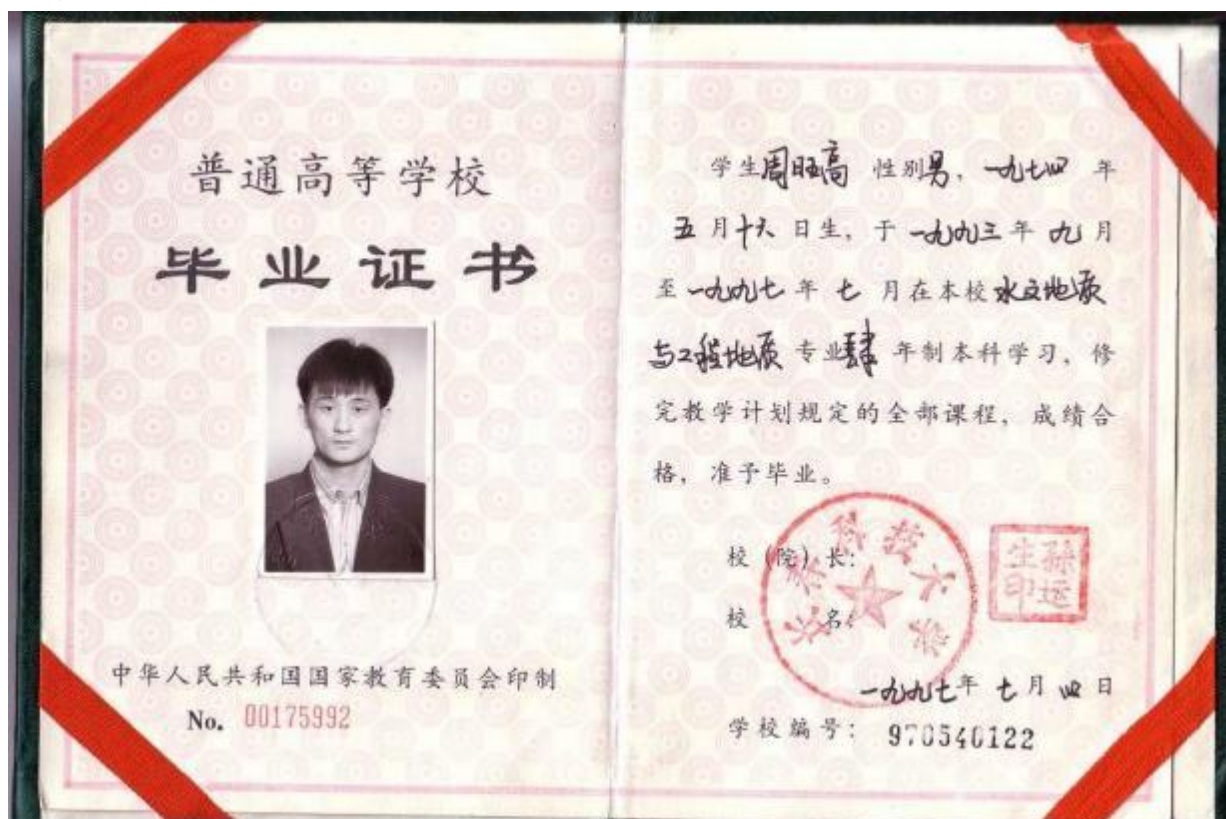 普通高等学校
毕业证书
中华人民共和国国家教育委员会印制
No. 00175992
学生周旺高 性别男，一九七四年
五月十六日生，于一九九三年九月
至一九九七年七月在本校水文地质
与工程地质专业肆年制本科学习，修
完教学计划规定的全部课程，成绩合
格，准予毕业。
校（院）长：
孙运生印
校名：
长春科技大学
一九九七年七月四日
学校编号：970540122